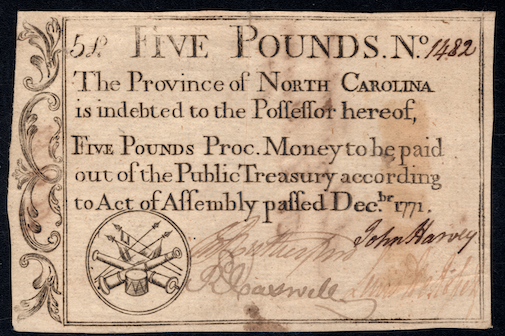 5£ FIVE POUNDS. No. 1482
The Province of NORTH CAROLINA
is indebted to the Poſſeſſor hereof,
FIVE POUNDS Proc. Money to be paid
out of the Public Treasury according
to Act of Aſſembly paſſed Dec.br 1771.
John Harvey
R Caswell